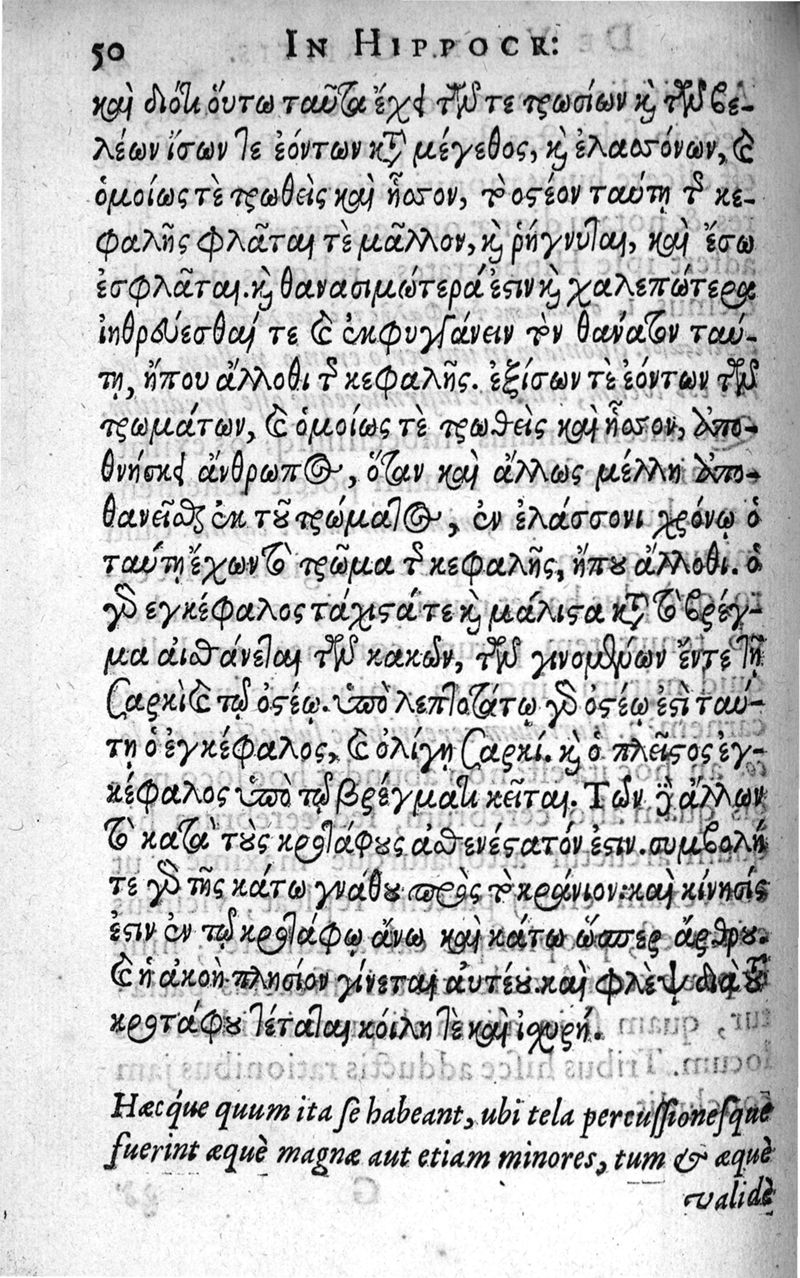 50 IN HIPPOCR:
καὶ διότι ὅυτω ταῦτα ἔχει τῶν τε τρωσίων καὶ τῶν βε-
λέων ἴσων τε ἐόντων κατὰ μέγεθος, καὶ ἐλασσόνων, καὶ
ὁμοίως τὲ τρωθεὶς καὶ ἧσσον, τὸ ὀστέον ταύτῃ τῆς κε-
φαλῆς φλᾶται τὲ μᾶλλον, καὶ ῥήγνυται, καὶ ἔσω
ἐσφλᾶται. καὶ θανασιμώτερά ἐστιν καὶ χαλεπώτερα
ἰηθρεύεσθαί τε καὶ ἐκφυγγάνειν τὸν θάνατον ταύ-
τῃ, ἤπου ἄλλοθι τῆς κεφαλῆς. ἐξίσων τὲ ἐόντων τῶν
τρωμάτων, καὶ ὁμοίως τὲ τρωθεὶς καὶ ἧσσον, ἀπο-
θνήσκει ἄνθρωπος, ὅταν καὶ ἄλλως μέλλῃ ἀπο-
θανεῖσθαι ἐκ τοῦ τρώματος, ἐν ἐλάσσονι χρόνῳ ὁ
ταύτῃ ἔχων τὸ τρῶμα τῆς κεφαλῆς, ἤπου ἄλλοθι. ὁ
γὰρ εγκέφαλος τάχιστά τε καὶ μάλιστα κατὰ τὸ βρέγ-
μα αἰσθάνεται τῶν κακῶν, τῶν γινομένων ἔν τε τῇ
σαρκὶ καὶ τῷ ὀστέῳ. ὑπὸ λεπτοτάτῳ γὰρ ὀστέῳ ἐστὶ ταύ-
τῃ ὁ ἐγκέφαλος, καὶ ὀλίγῃ σαρκί. καὶ ὁ πλεῖστος ἐγ-
κέφαλος ὑπὸ τῷ βρέγματι κεῖται. Τῶν δὲ ἄλλων
τὸ κατὰ τοὺς κροτάφους ἀσθενέστατόν ἐστιν. συμβολή
τε γὰρ τῆς κάτω γνάθου πρὸς τὸ κράνιον: καὶ κίνησίς
ἐστιν ἐν τῷ κροτάφῳ ἄνω καὶ κάτω ὥσπερ ἄρθρου.
καὶ ἡ ἀκοὴ πλησίον γίνεται ἀυτέου. καὶ φλὲψ διὰ τοῦ
κροτάφου τέταται κόιλη τὲ καὶ ἰσχυρή.
Hæcque quum ita se habeant, ubi tela percussionesque
fuerint æquè magnæ aut etiam minores, tum & æquè
validè